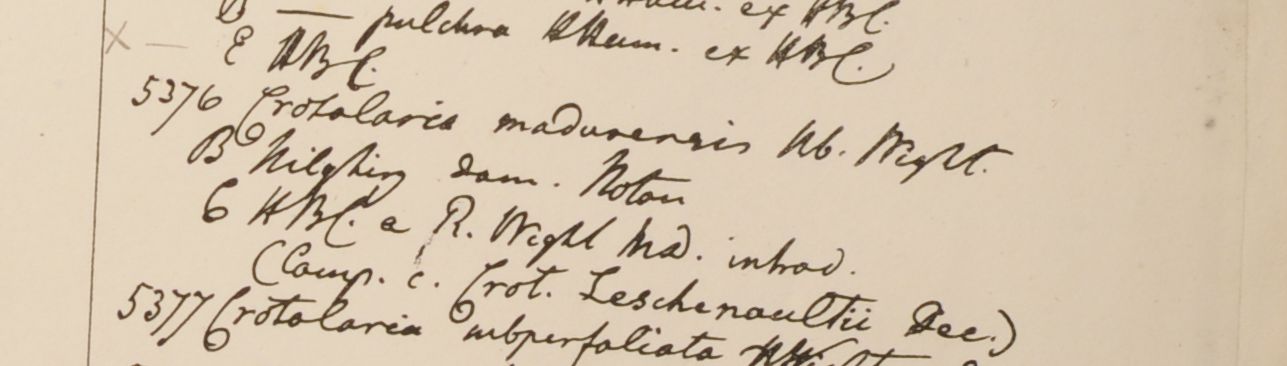 B — HHam. ex HBC.
— pulchra HHam. ex HBC.
E HBC.
5376 Crotalaria madurensis Hb. Wight.
B Nilghiry dom. Noton
C HBC. a R. Wight Md. introd.
(Comp. c. Crot. Leschenaultii Dec.)
5377 Crotalaria subperfoliata